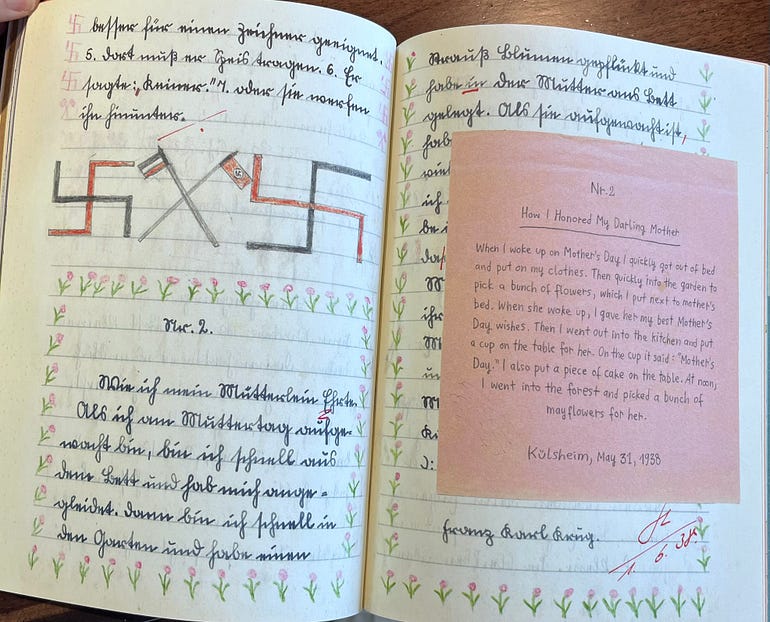 besser für einen Zeichner geeignet.
5. dort muß er Speis tragen. 6. Er
sagte: „Keiner." 7. oder sie werfen
ihn hinunter.
Nr. 2.
Wie ich mein Mütterlein Ehrte.
Als ich am Muttertag aufge-
wacht bin, bin ich schnell aus
dem Bett und hab mich ange-
gleidet. dann bin ich schnell in
den Garten und habe einen
Strauß Blumen gepflückt und
habe in der Mutter ans Bett
gelegt. Als sie aufgewacht ist,
hab
ich
ihr
Nr. 2
How I Honored My Darling Mother
When I woke up on Mother's Day I quickly got out of bed
and put on my clothes. Then quickly into the garden to
pick a bunch of flowers, which I put next to mother's
bed. When she woke up, I gave her my best Mother's
Day wishes. Then I went out into the kitchen and put
a cup on the table for her. On the cup it said: "Mother's
Day." I also put a piece of cake on the table. At noon,
I went into the forest and picked a bunch of
mayflowers for her.
Külsheim, May 31, 1938
Franz Karl Krug.
1. 6. 38.